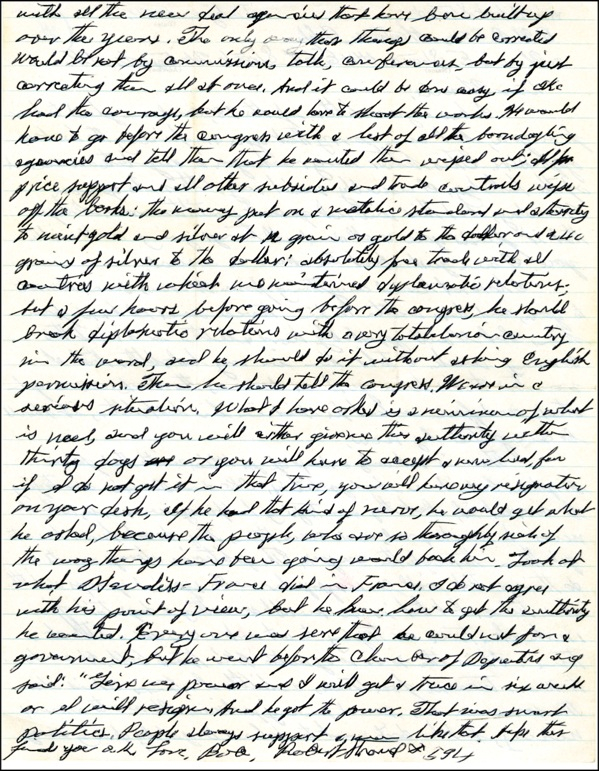 with all the new deal agencies that have been built up
over the years. The only way that things could be corrected
would be not by commissions, talk, conferences, but by just
correcting them all at once. And it could be done easy, if Ike
had the courage, but he would have to shoot the works. He would
have to go before the congress with a list of all the boondogling
agencies and tell them that he wanted them wiped out; all
price support and all other subsidies and trade controls wipe
off the books: the money put on a metalic standard and authority
to mint gold and silver at grain os gold to the dollar and
grains of silver to the dollar: absolutely free trade with all
countries with which we maintained dyplomatic relations.
but a few hours before going before the congress, he should
break diplomotic relations with every totalitarian country
in the word, and he should do it without asking English
permission. Then he should tell the congress. We are in a
serious situation. What I have asked is a minimum of what
is need, and you will either give me this authority within
thirty days or you will have to accept a new, for
if I do not get it in that time, you will have my resignation
on your desk. If he had that kind of nerve, he would get what
he asked, because the people, who are so thoroughly sick of
the way things have been going would back him. Look at
what Mendes-France did in France, I do not agree
with his point of view, but he knew how to get the authority
he wanted. Every one was sure that he could not form a
government, but he went before the Chamber of Deputies and
said: "Give me power and I will get a truce in six weeks
or I will resign. And he got the power. That was smart
politics. People always support a man like that. hope this
finds you o.k. Love, Bob, Robert Stroud 594